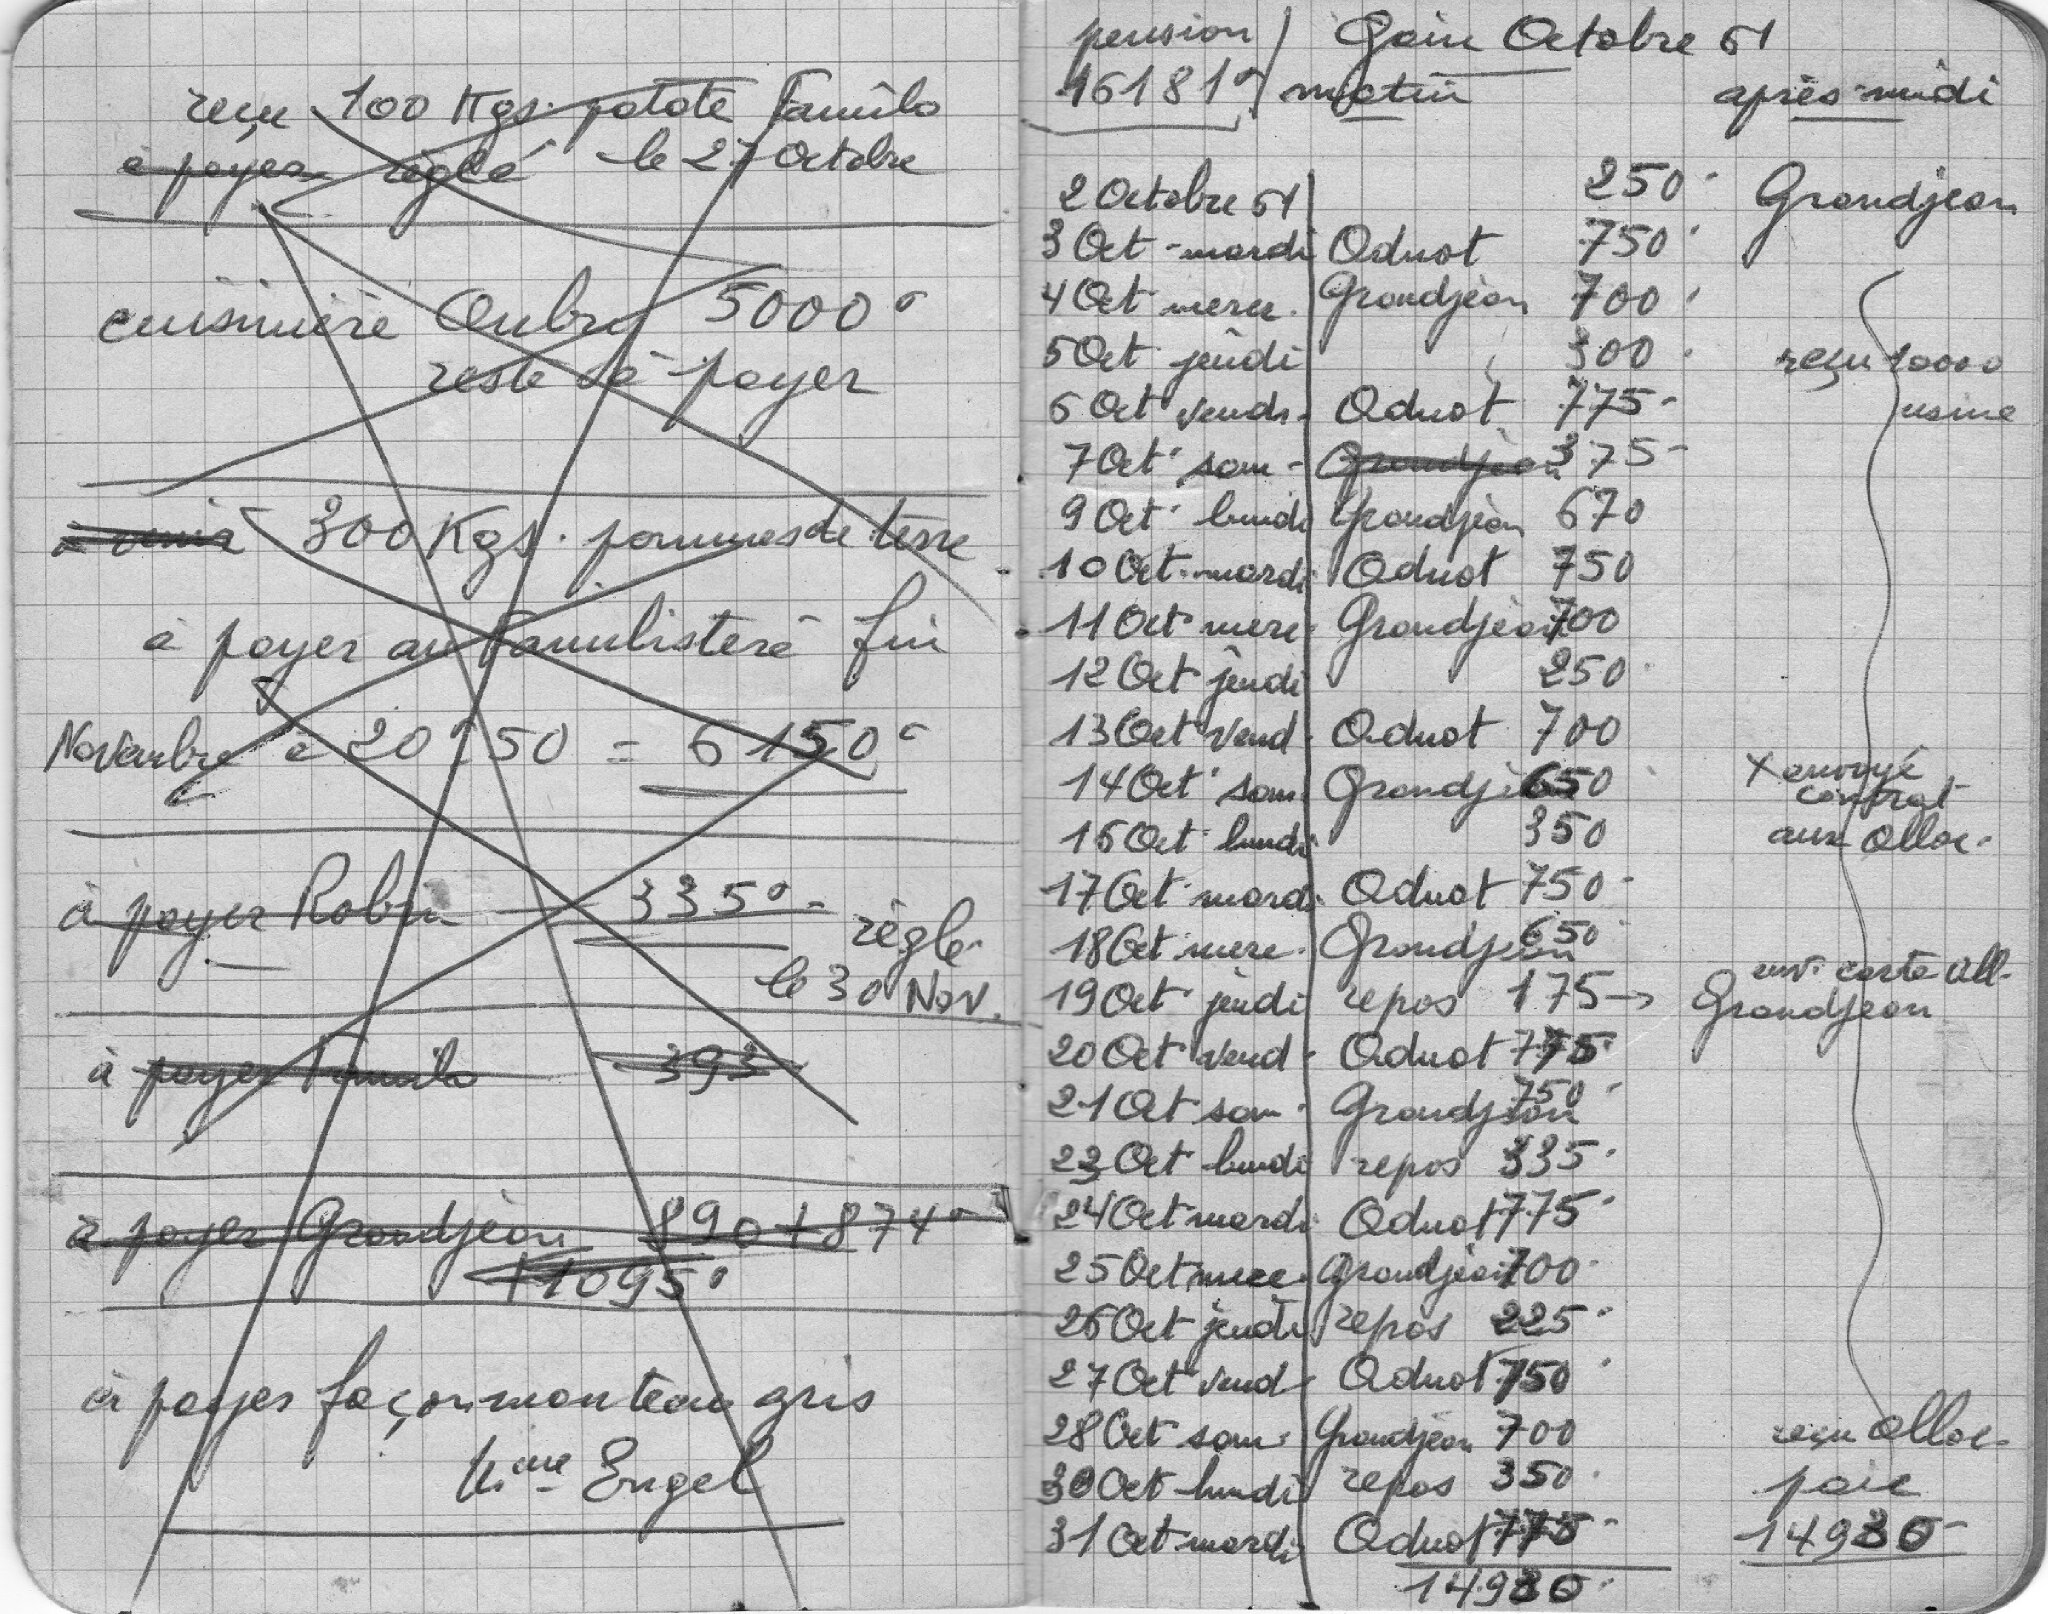 reçu 100 Kgs. patate Familo
à payer réglé le 27 Octobre
cuisinière Aubry 5000°
reste à payer
300 Kgs. pommes de terre
à payer au Familistère fin
Novembre à 20°50 = 6150°
à payer Robin 335°- règlé
le 30 Nov.
à payer Familo 393
à payer Grandjean 890+874°
+1095°
à payer façon manteau gris
Mme Engel
pension
16181°
Gain Octobre 61
matin après-midi
2 Octobre 61 250 Grandjean
3 Oct - mardi Adnot 750
4 Oct mercr. Grandjean 700
5 Oct jeudi 300 reçu 10000
usine
6 Oct vendr. Adnot 775-
7 Oct sam - Grandjean 375-
9 Oct lundi Grandjean 670
10 Oct. mardi Adnot 750
11 Oct mere. Grandjean 700
12 Oct jeudi 250
13 Oct vend. Adnot 700
14 Oct sam. Grandjean 650 x envoyé
contrat
16 Oct lundi 350 aux Alloc.
17 Oct mardi Adnot 750-
18 Oct mere. Grandjean 650
env. carte All-
19 Oct jeudi repos 175 → Grandjean
20 Oct vend. Adnot 775
21 Oct sam. Grandjean 750
23 Oct lundi repos 335
24 Oct mardi Adnot 775
25 Oct mere. Grandjean 700
26 Oct jeudi repos 225
27 Oct vend. Adnot 750
28 Oct sam. Grandjean 700 reçu Alloc-
30 Oct lundi repos 350 paie
31 Oct mardi Adnot 775- 14980-
14980